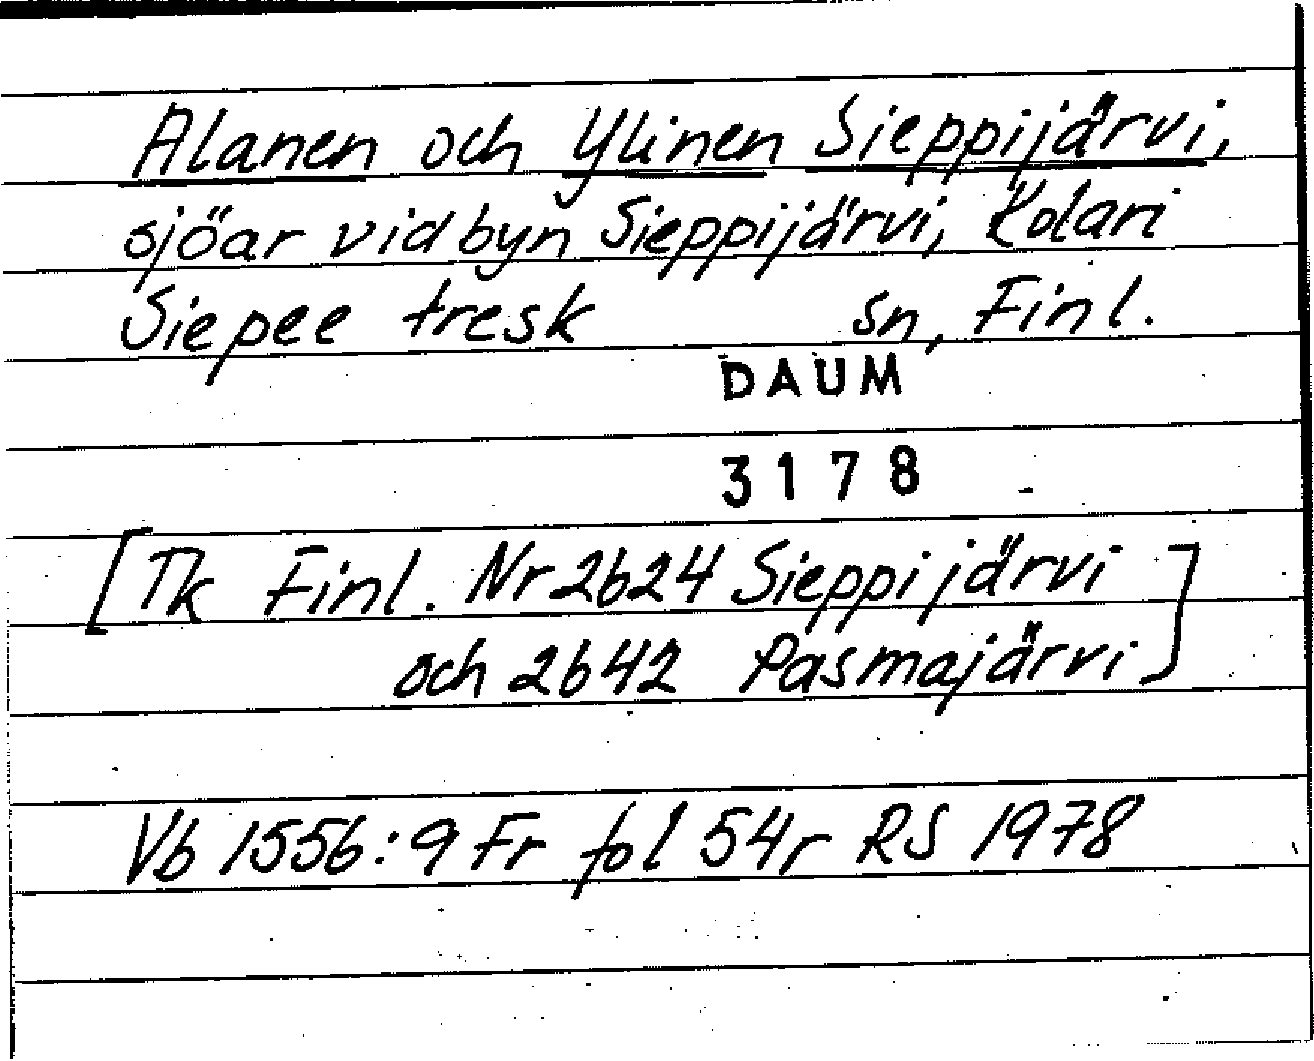 Alanen och Ylinen Sieppijärvi,
sjöar vid byn Sieppijärvi, Kolari
Siepee tresk sn, Finl.
DAUM
3178
[Tk Finl. Nr 2624 Sieppijärvi
och 2642 Pasmajärvi]
Vb 1556:9 Fr fol 54r RS 1978